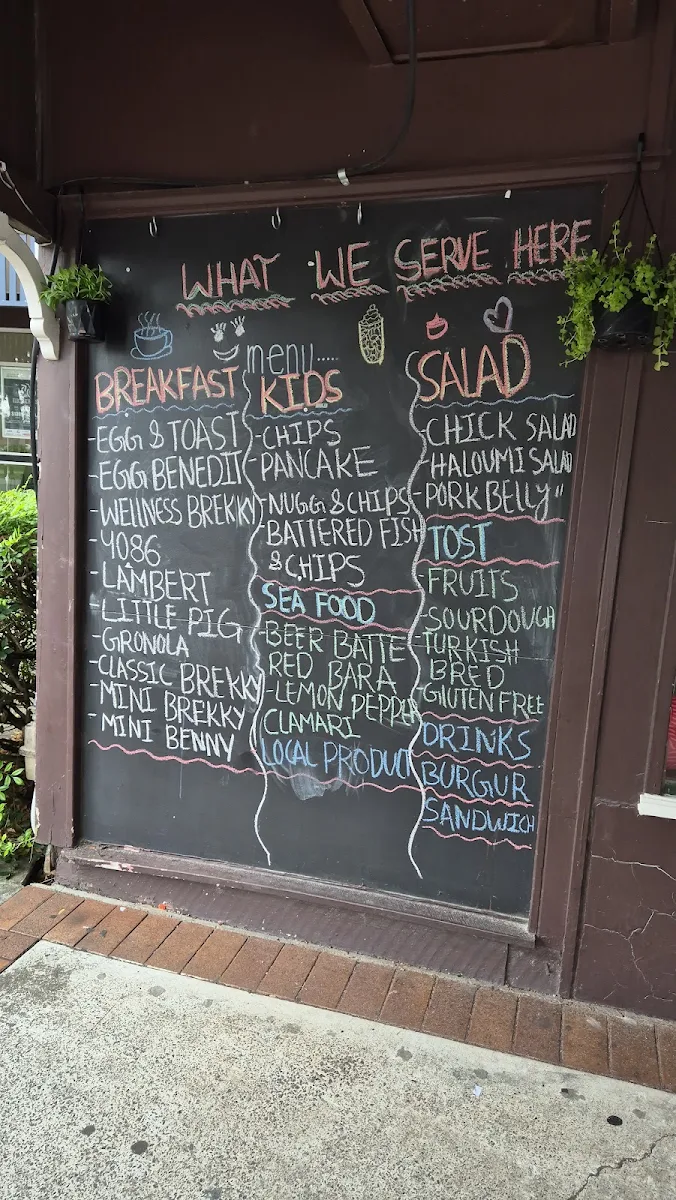 WHAT WE SERVE HERE
menu.....
BREAKFAST
-EGG & TOAST
-EGG BENEDIT
-WELLNESS BREKKY
-4086
-LAMBERT
-LITTLE PIG
-GRONOLA
-CLASSIC BREKKY
-MINI BREKKY
-MINI BENNY
KIDS
-CHIPS
-PANCAKE
-NUGG & CHIPS
-BATTERED FISH
& CHIPS
SEA FOOD
-BEER BATTE
RED BARA
-LEMON PEPPER
CLAMARI
LOCAL PRODUCT
SALAD
-CHICK SALAD
-HALOUMI SALAD
-PORK BELLY "
TOST
-FRUITS
-SOURDOUGH
-TURKISH
BRED
GLUTEN FREE
DRINKS
BURGUR
SANDWICH